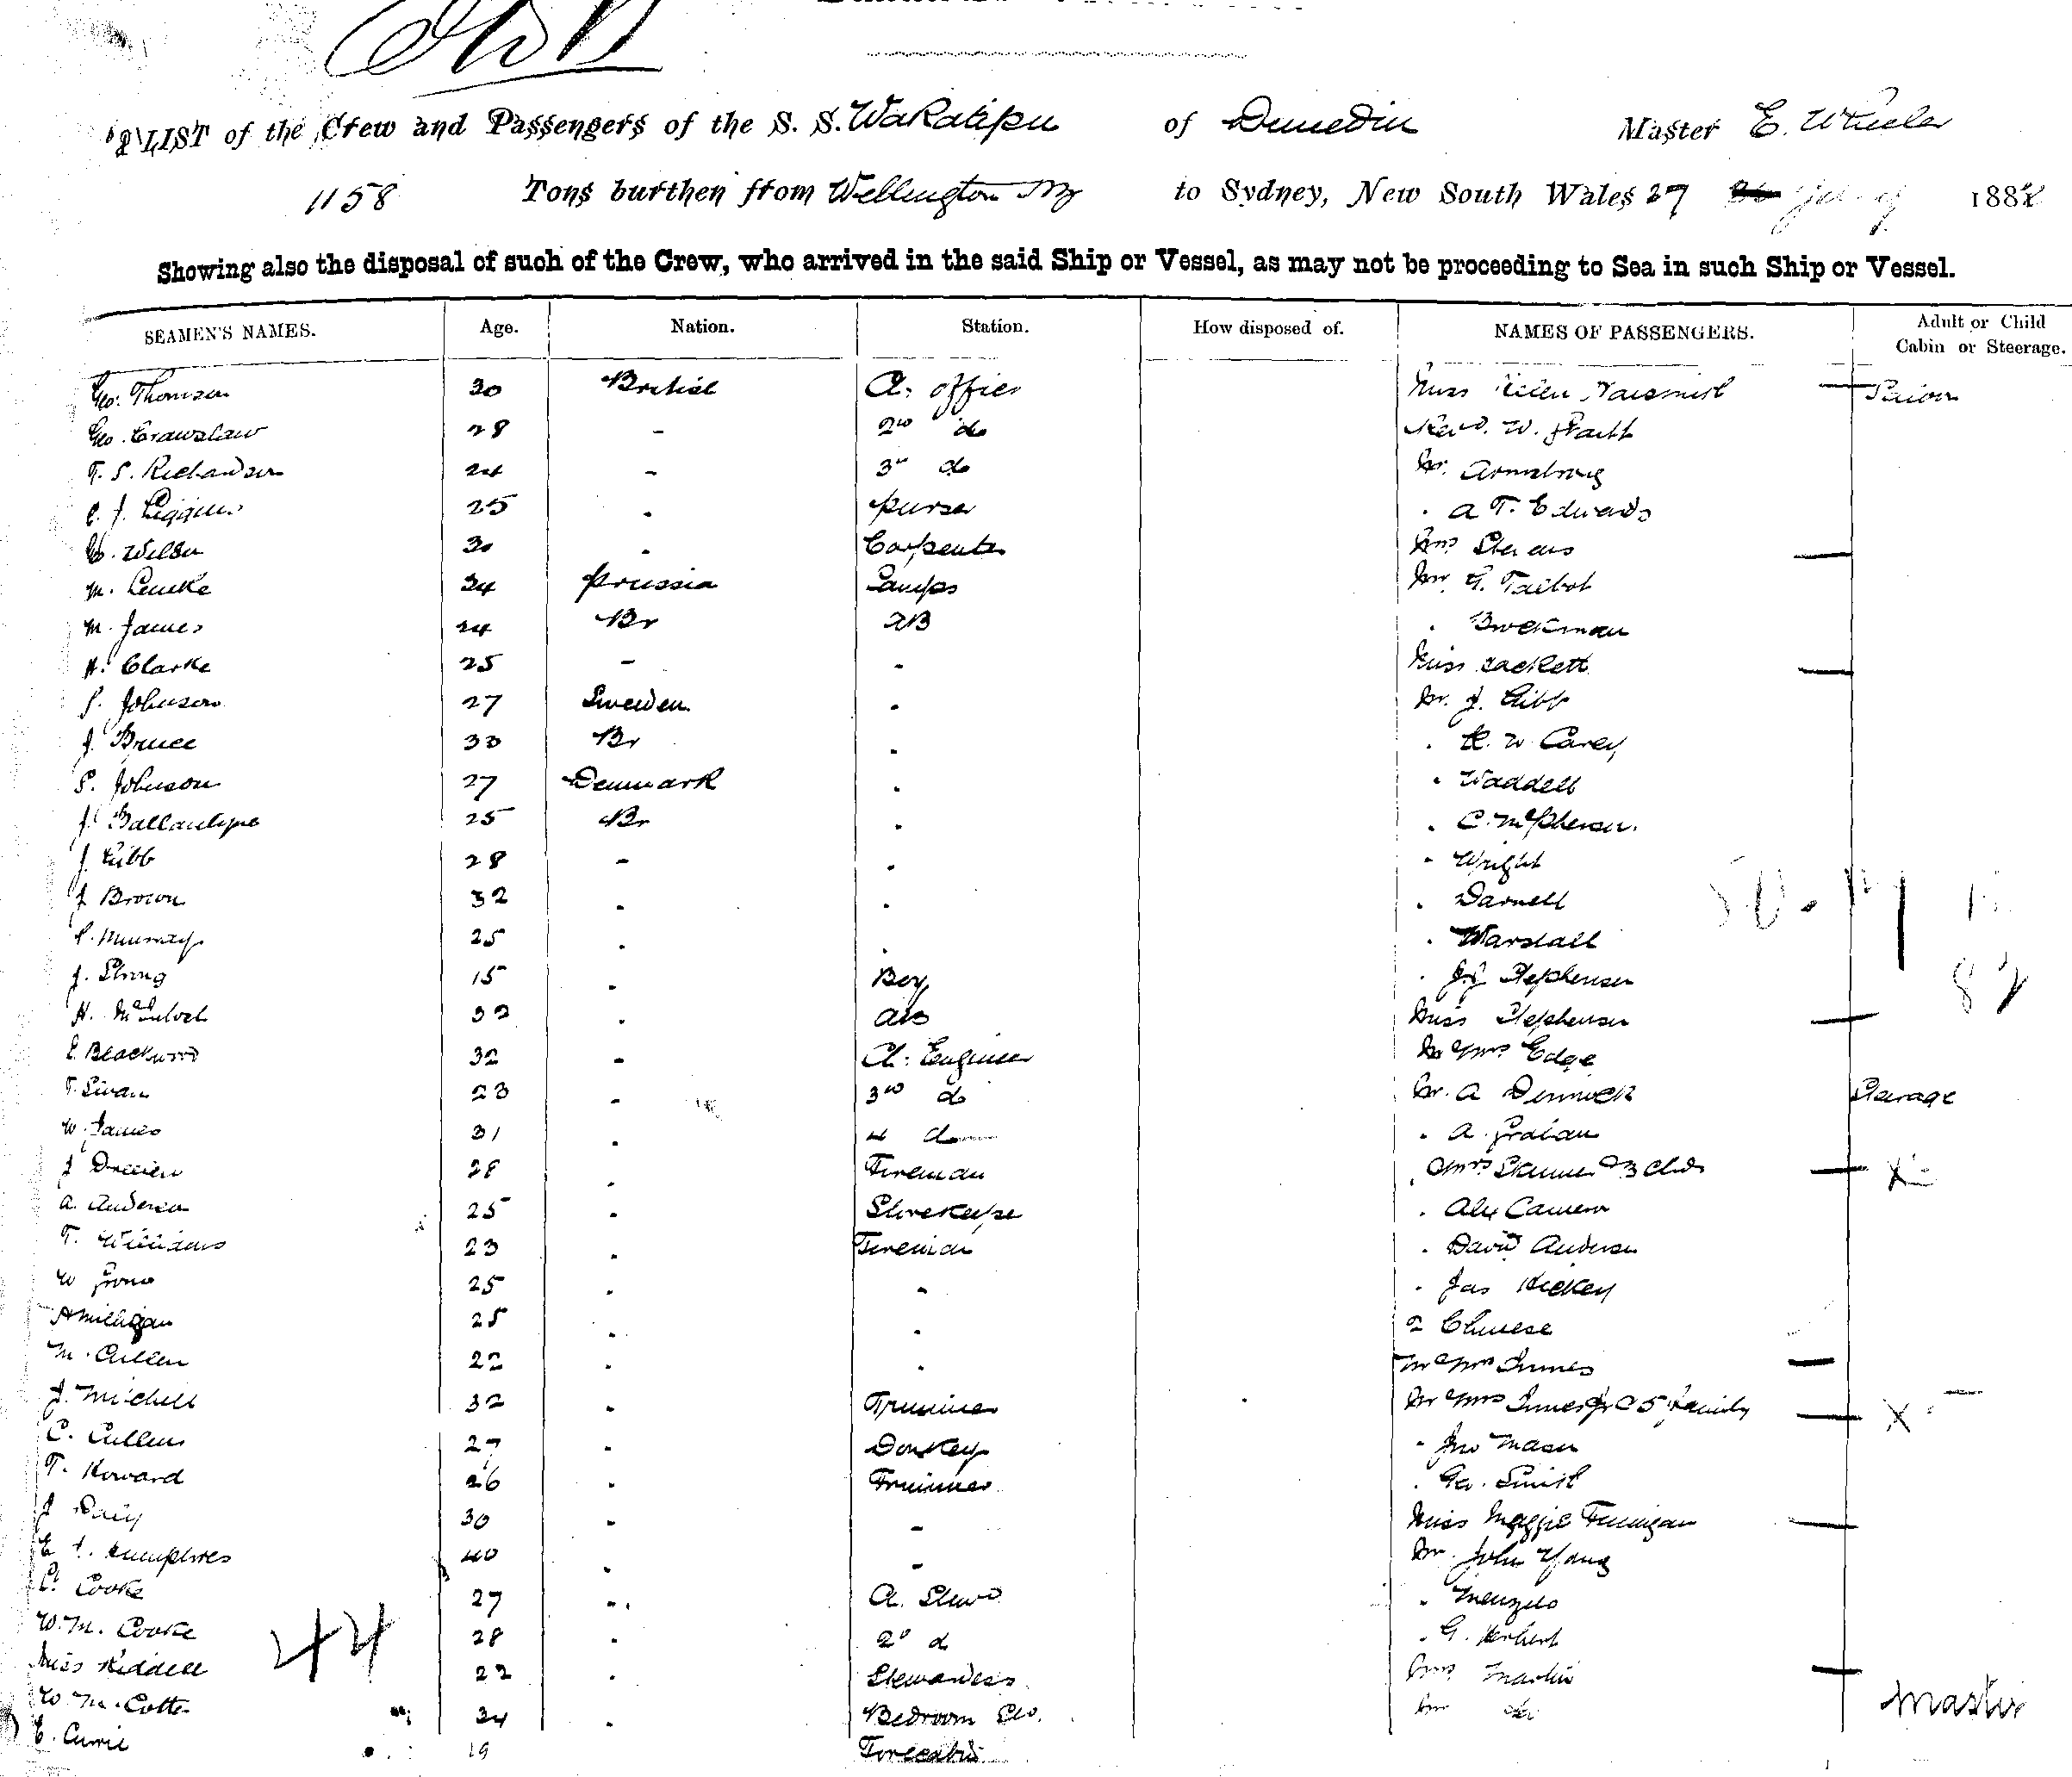 LIST of the Crew and Passengers of the S. S. Wakatipu of Dunedin Master E. Wheeler
1158 Tons burthen from Wellington NZ to Sydney, New South Wales 27 July 1882
Showing also the disposal of such of the Crew, who arrived in the said Ship or Vessel, as may not be proceeding to Sea in such Ship or Vessel.
SEAMEN'S NAMES. Age. Nation. Station. How disposed of. NAMES OF PASSENGERS. Adult or Child Cabin or Steerage.
Geo. Thomson 30 British Ch. officer Miss Naismith Saloon
Geo. Crawshaw 28 - 2nd do Revd. W.
T. S. Richardson 24 - 3rd do Mr. Armstrong
C. J. 25 . Purser . A T. Edwards
Wilson 30 . Carpenter Mrs
M. 34 Prussia Lamps Mr G. Talbot
M. James 24 Br AB .
H. Clarke 25 - - Miss Sackett
S. Johnson 27 Sweden . Mr. J. Gibb
J. Bruce 33 Br . . W. Carey
P. Johnson 27 Denmark . . Waddell
J. Ballantyne 25 Br . . C. McPherson.
J. Gibb 28 - . . Wright
J Brown 32 . . . Darnell
Murray 25 . . . Marshall
J. Strang 15 . Boy . Stephenson
H. 32 . AB Miss Stephenson
Blackwood 32 - Ch. Engineer Mr & Mrs Edge
T. Swan 23 . 3rd do Mr. A Steerage
W. James 31 . 4 do . A. Graham
J 28 . Fireman . Mrs Skinner & 3 chdn
A. Anderson 25 . Storekeeper . Alex Cameron
T. Williams 23 . Fireman . David Anderson
W 25 . - . Jas Hickey
A Milligan 25 . . 2 Chinese
M. Cullen 22 . . Mr & Mrs Innes
J. Mitchell 32 . Trimmer Mr & Mrs Innes Jr & 5 Family
C. Cullen 27 . Donkey . Jno Mason
T. Howard 26 . Trimmer . Geo. Smith
J Daly 30 . - Miss Maggie Finnigan
E. Humphries 40 . - Mr. John Young
Cooke 27 . Ch. Stewd . Menzies
W. M. Cooke 28 . 2nd do . G. Herbert
Miss Riddell 22 . Stewardess Mrs Martin
W. M. Cotter 34 . Bedroom Stwd. Mr do
E. Currie 19 Forecabin
44